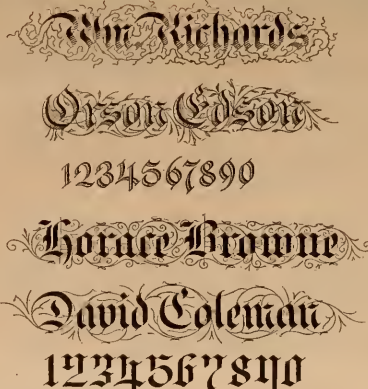 Wm Richards
Orson Edson
1234567890
Horace Browne
David Coleman
1234567890